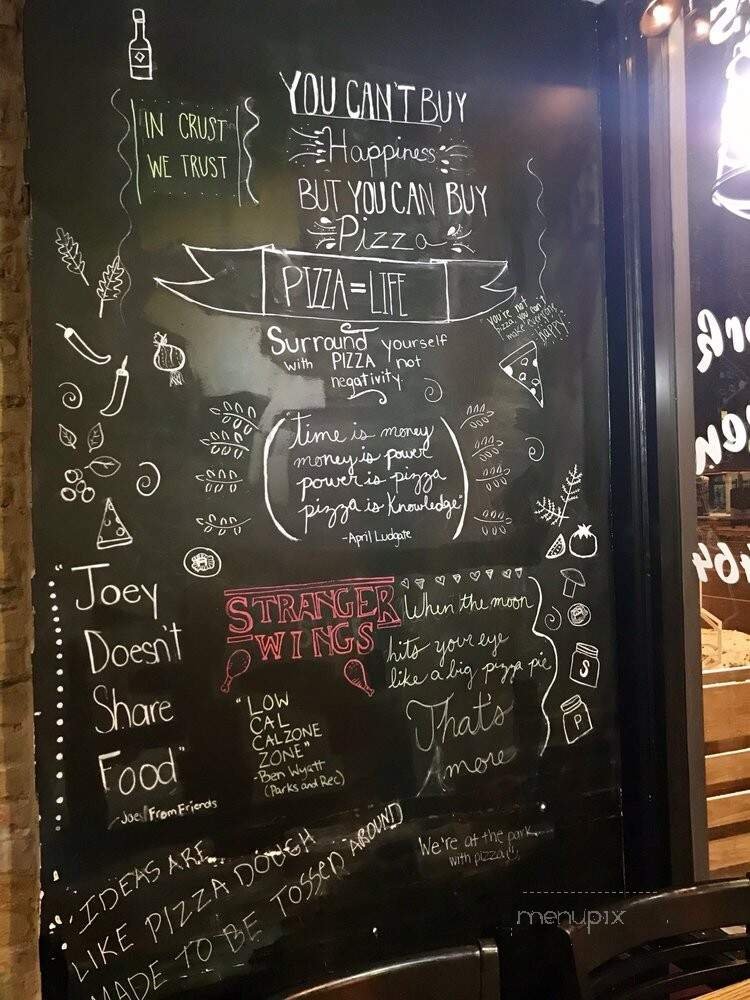 YOU CAN'T BUY
Happiness
BUT YOU CAN BUY
Pizza
IN CRUST
WE TRUST
PIZZA = LIFE
Surround yourself
with PIZZA not
negativity.
you're not
pizza, you can't
make everyone
happy!
Time is money
money is power
power is pizza
pizza is knowledge"
-April Ludgate
"Joey
Doesn't
Share
Food"
-Joey From Friends
STRANGER
WINGS
"LOW
CAL
CALZONE
ZONE"
-Ben Wyatt
(Parks and Rec)
When the moon
hits your eye
like a big pizza pie
That's
more
S
P
IDEAS ARE
LIKE PIZZA DOUGH
MADE TO BE TOSSED AROUND
We're at the park
with pizza
menupix